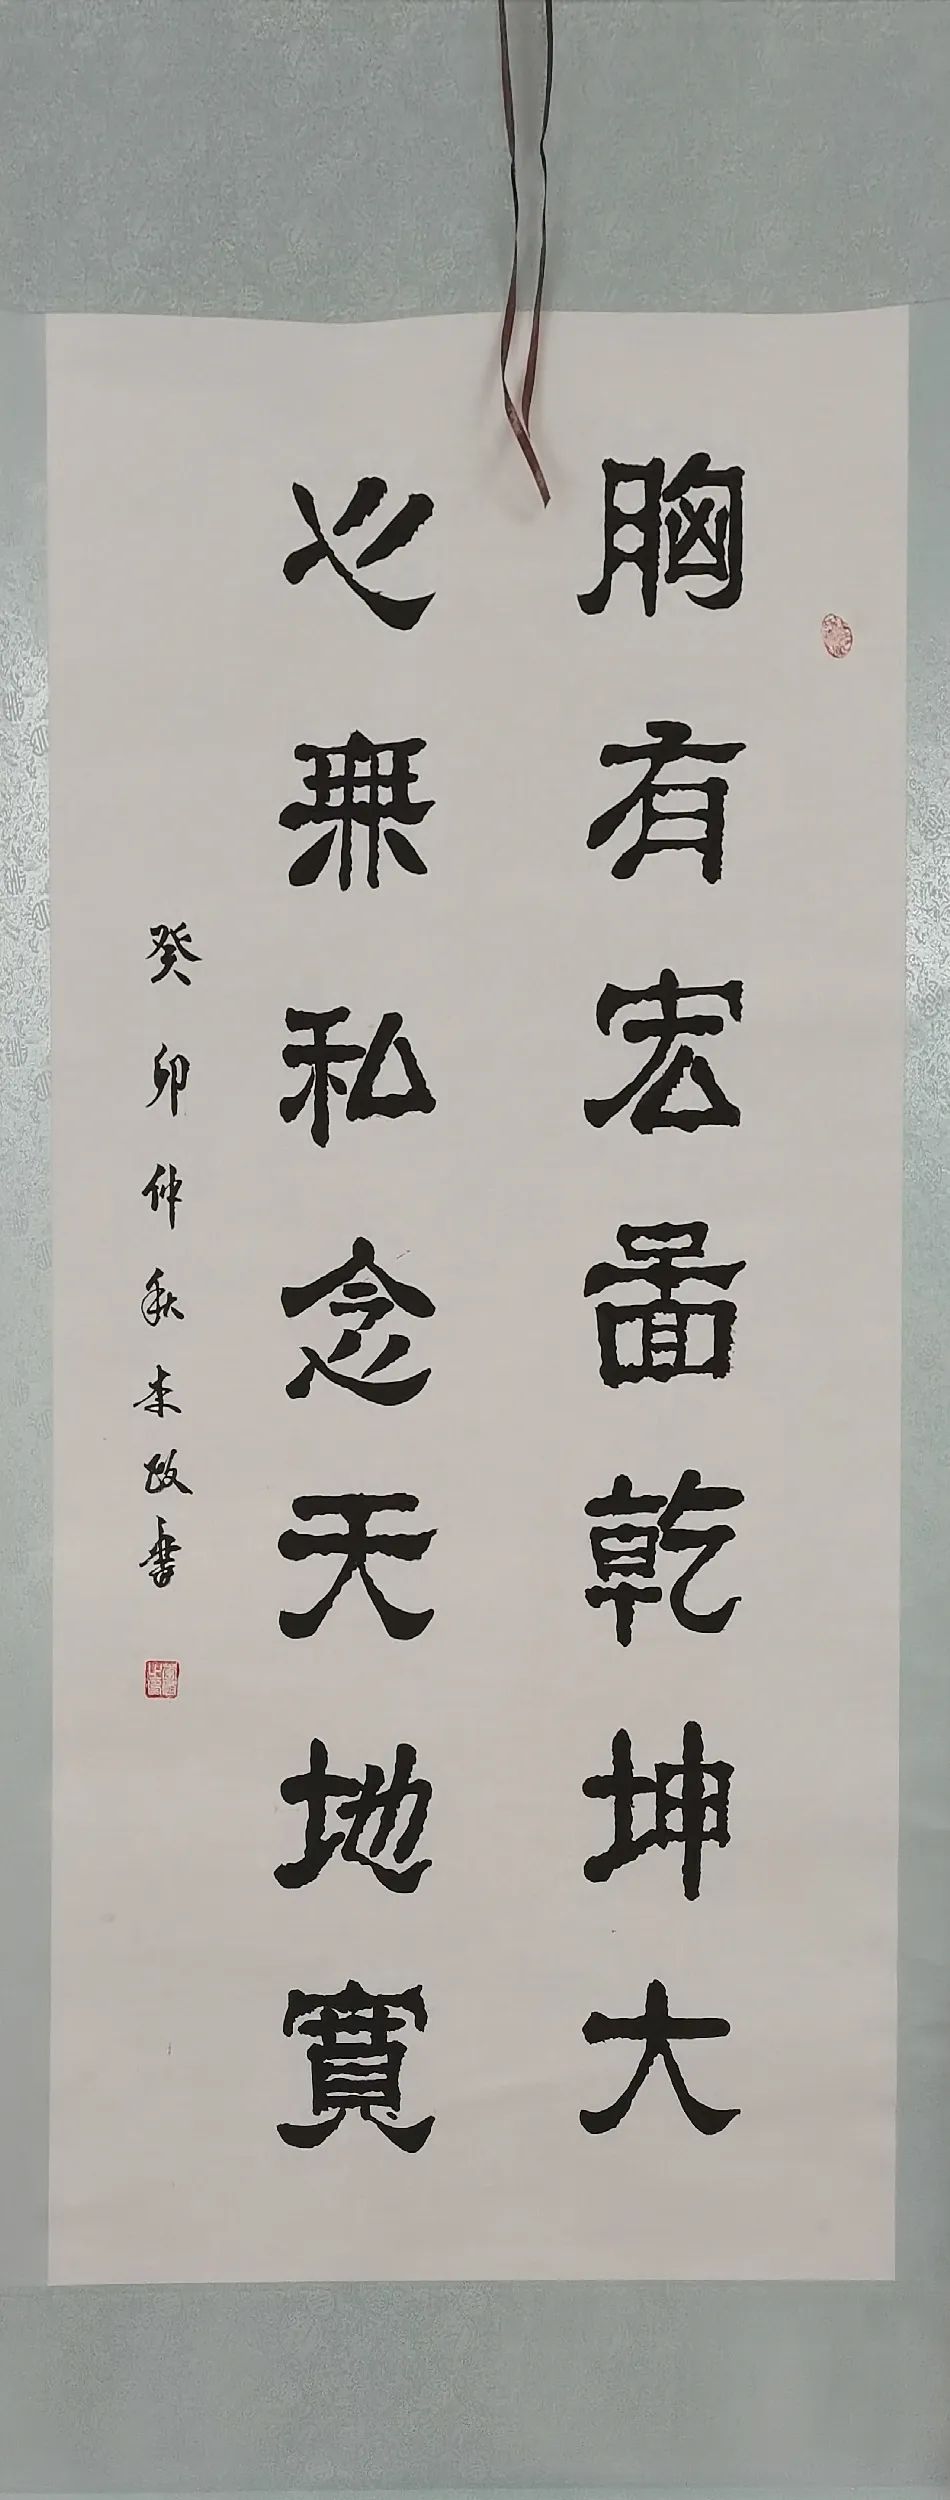 胸有宏圖乾坤大
心無私念天地寬
癸卯仲秋李政書